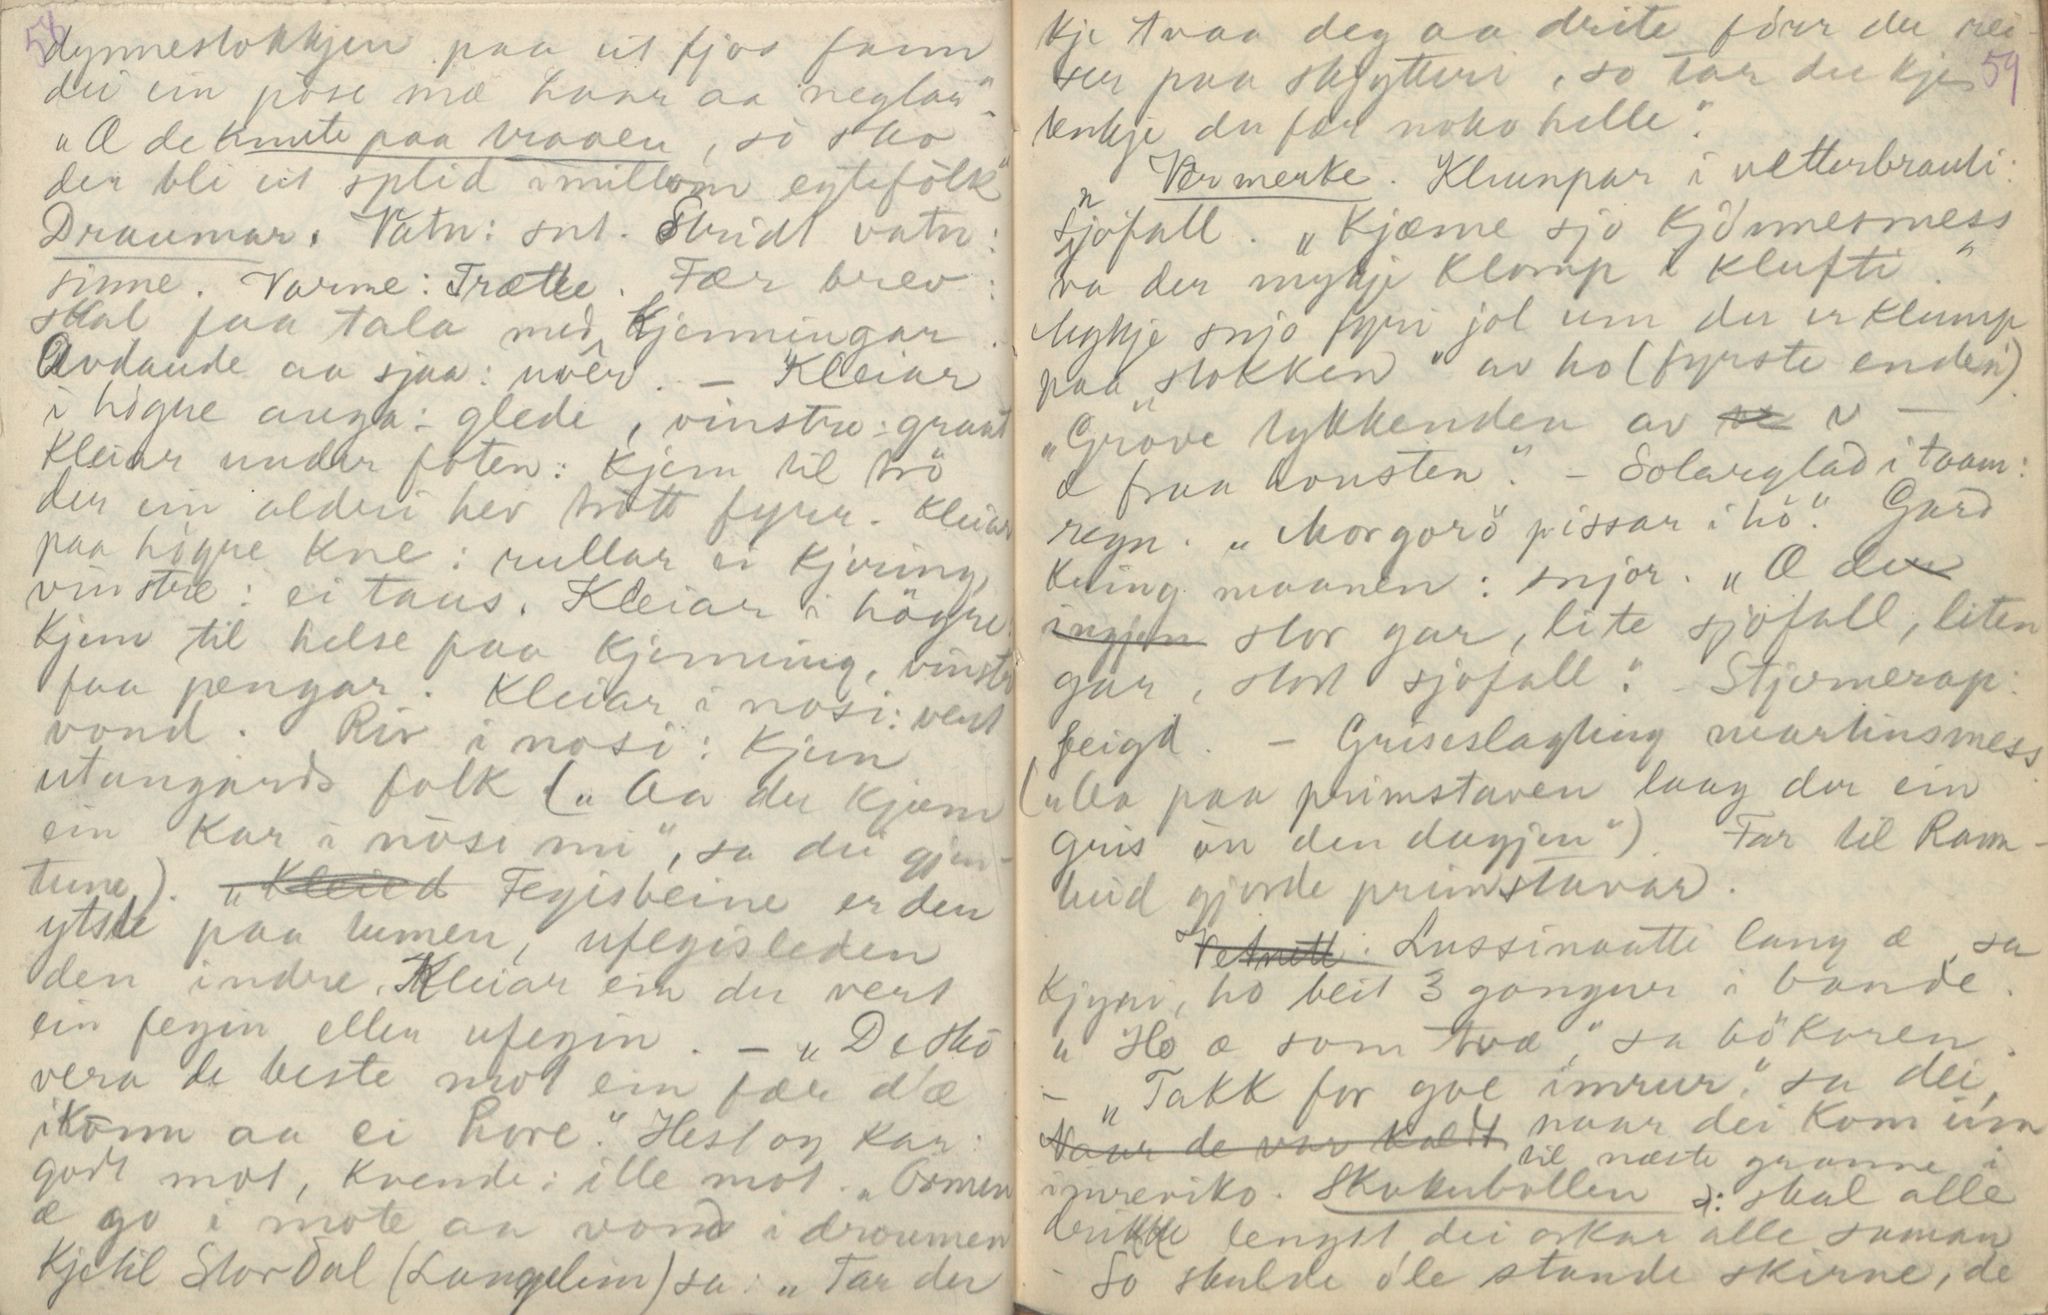 58
dynnestokkjen paa eit fjos fann
dei ein pose mæ haar aa neglar"
"Æ de knute paa traaen, so sko
der bli eit splid imillom egtefolk"
Draumar. Vatn: snt. Stridt vatn:
sinne. Varme: Trætte. Fær brev:
skal faa tala med kjenningar.
Avdaude aa sjaa: uvêr. – Kleiar
i högre auga: glede, vinstre: graat
Kleiar under foten: kjem til trö
der ein aldri hev trött fyrr. Kleiar
paa högre kne: rullar ei kjering,
vinstre: ei taus. Kleiar i högre:
kjem til helse paa kjenning, vinstre
faa pengar. Kleiar i nosi: vert
vond. Riv i nosi: kjem
utangards folk ("Aa der kjæm
ein kar i nosi mi", sa dei gjen-
tune). "Kleied Fegisbeine er den
ytste paa tumen, ufegisleden
den indre. Kleiar ein der vert
ein fegin eller ufegin. – "De sko
vera de beste mot ein fær d'æ
ikonn aa ei hore". Hest og kar:
godt mot, kvende: ille mot. "Ormen
æ go i mote aa vond i draumen
Kjetil Stordal (Langelim) sa: "Tar der
kje tvaa deg aa drite förr du rei-
ser paa skjytteri, so tar du kje 59
tenkje du fær noko helle".
Vermerke. Klumpar i vetterbrauti:
snjofall. "Kjæme sjo kjönnesmess
va der mykje klomp i klufti."
Mykje snjo fyri jol um der er klump
paa "stokken" av ho (fyrste enden).
"Gröve tykkenden av ve v –
æ fraa housten". – Solarglad i tvam:
regn. "Morgorö pissar i hö". Gard
kring maanen: snjor. "Æ den
ingjen stor gar, lite sjofall, liten
gar, stort sjofall". – Stjernerap:
feigd. – Griseslagting martinsmess
("Aa paa primstaven laag der ein
gris on den dagjen"). Far til Ram-
hud gjorde primstavar.
Vetnett. Lussinaatti lang æ, sa
kjyri, ho beit 3 gongur i bande.
"Ho æ som tvæ", sa bökaren.
– "Takk for goe imrur". sa dei,
Naar de var kaldt naar dei kom um
til næste granne i
imreviko. Skokubollen : skal alle
drikke lengst dei orkar alle saman
– So skulde öle stande skirne, de